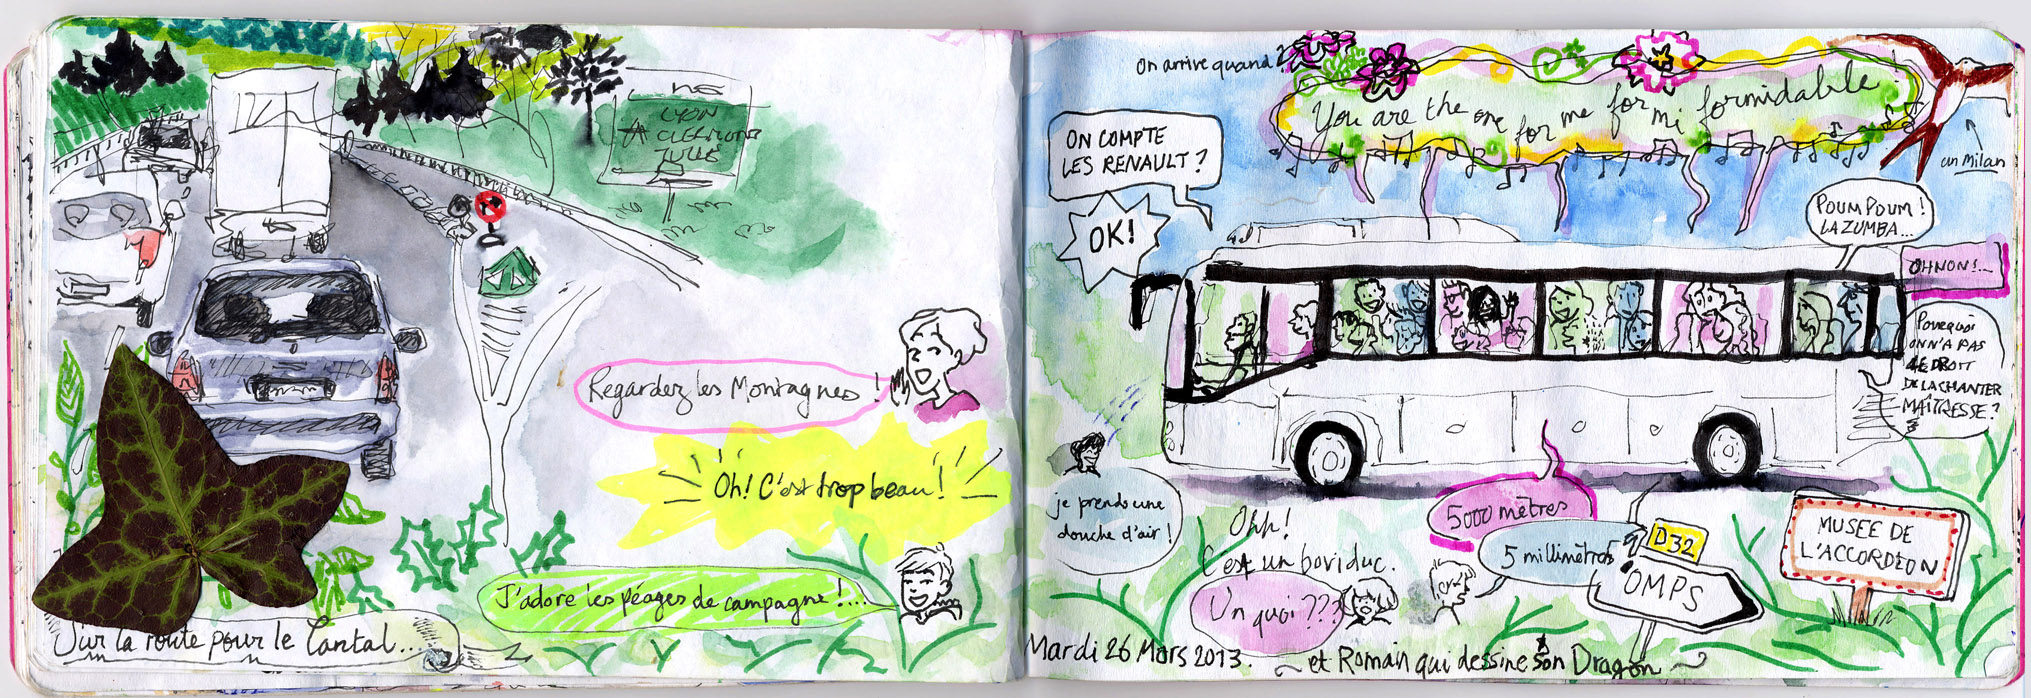 LYON
CLERMONT
TULLE
Regardez les Montagnes !
Oh! C'est trop beau!
J'adore les péages de campagne!....
Sur la route pour le Cantal...
On arrive quand?
You are the one for me for mi formidable
un Milan
ON COMPTE
LES RENAULT?
OK!
POUM POUM!
LA ZUMBA...
OH NON!...
Pourquoi
ON N'A PAS
LE DROIT
DE LA CHANTER
MAÎTRESSE?
je prends une
douche d'air!
Ohh!
C'est un boviduc.
Un quoi ???
5000 mètres
5 millimètres
D32
OMPS
MUSEE DE
L'ACCORDEON
Mardi 26 Mars 2013.
et Romain qui dessine son Dragon